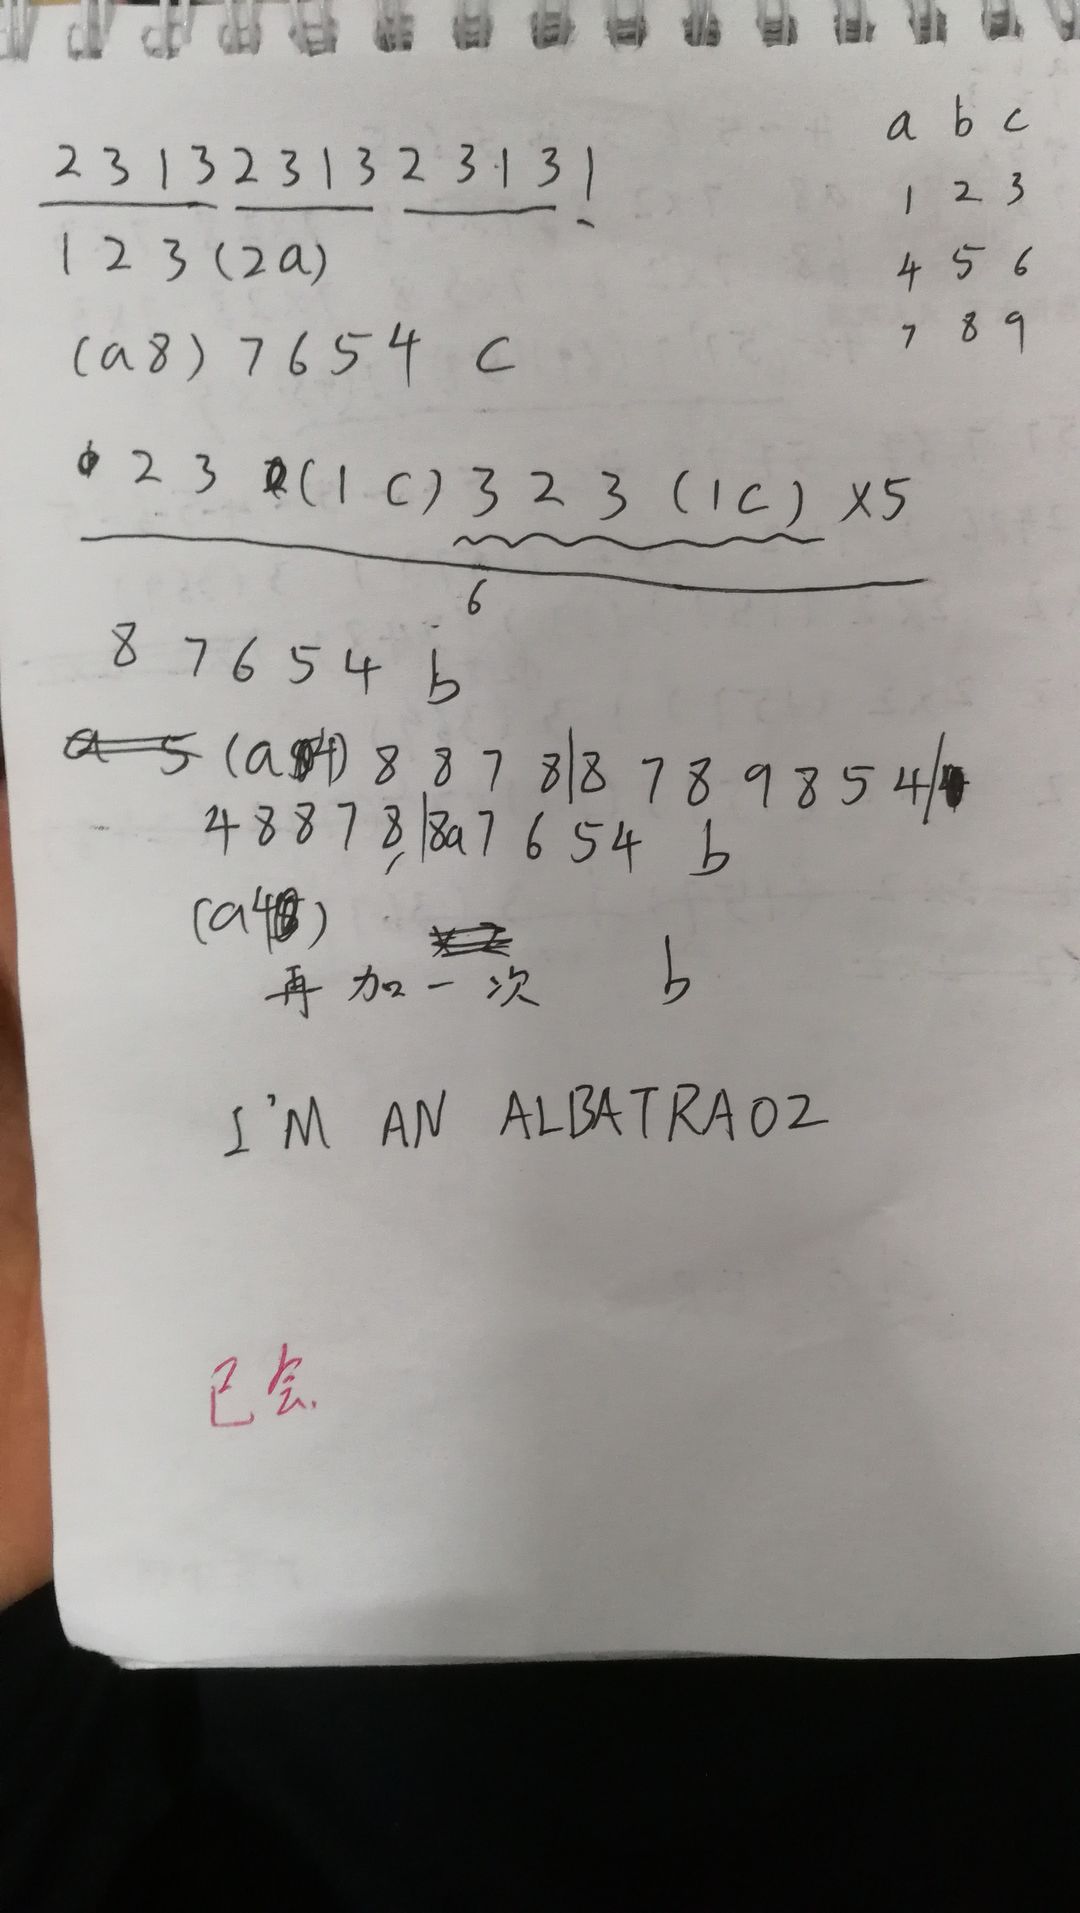 a b c
2 3 1 3 2 3 1 3 2 3 1 3 1
1 2 3
1 2 3 (2a)
4 5 6
(a8) 7 6 5 4 c
7 8 9
2 3 (1 c) 3 2 3 (1c) ×5
6
8 7 6 5 4 b
(a4) 8 8 7 8|8 7 8 9 8 5 4/
4 8 8 7 8,|8a7 6 5 4 b
(a4)
再加一次 b
I'M AN ALBATRAOZ
已会.